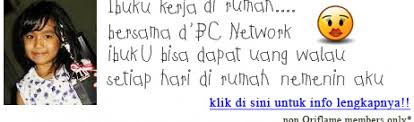 Ibuku kerja di rumah....
bersama d'BC Network
ibukU bisa dapat uang walau
setiap hari di rumah nemenin aku
klik di sini untuk info lengkapnya!!
non Oriflame members only*